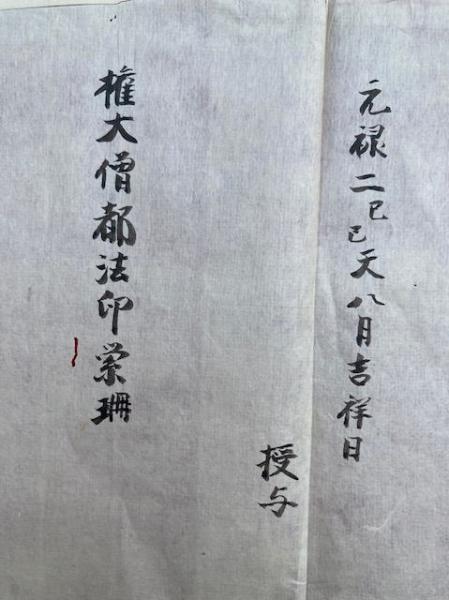 元禄二己巳天八月吉祥日
授与
権大僧都法印栄珊